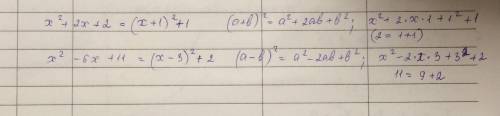 x² + 2x + 2 = (x+1)² + 1 (a+b)² = a² + 2ab + b²; x² + 2·x·1 + 1² + 1
(2 = 1+1)
x² - 6x + 11 = (x-3)² + 2 (a-b)² = a² - 2ab + b²; x² - 2·x·3 + 3² + 2
11 = 9 + 2